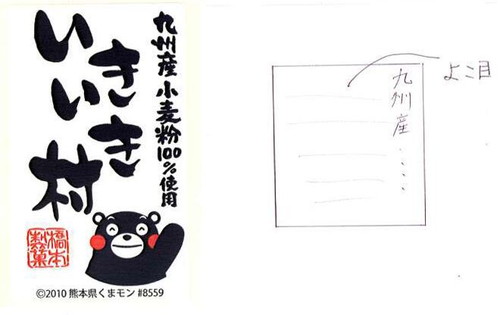 九州産小麦粉100%使用
いきいき村
橋本
製菓
©2010 熊本県くまモン #8559
よこ目
九州産・・・・